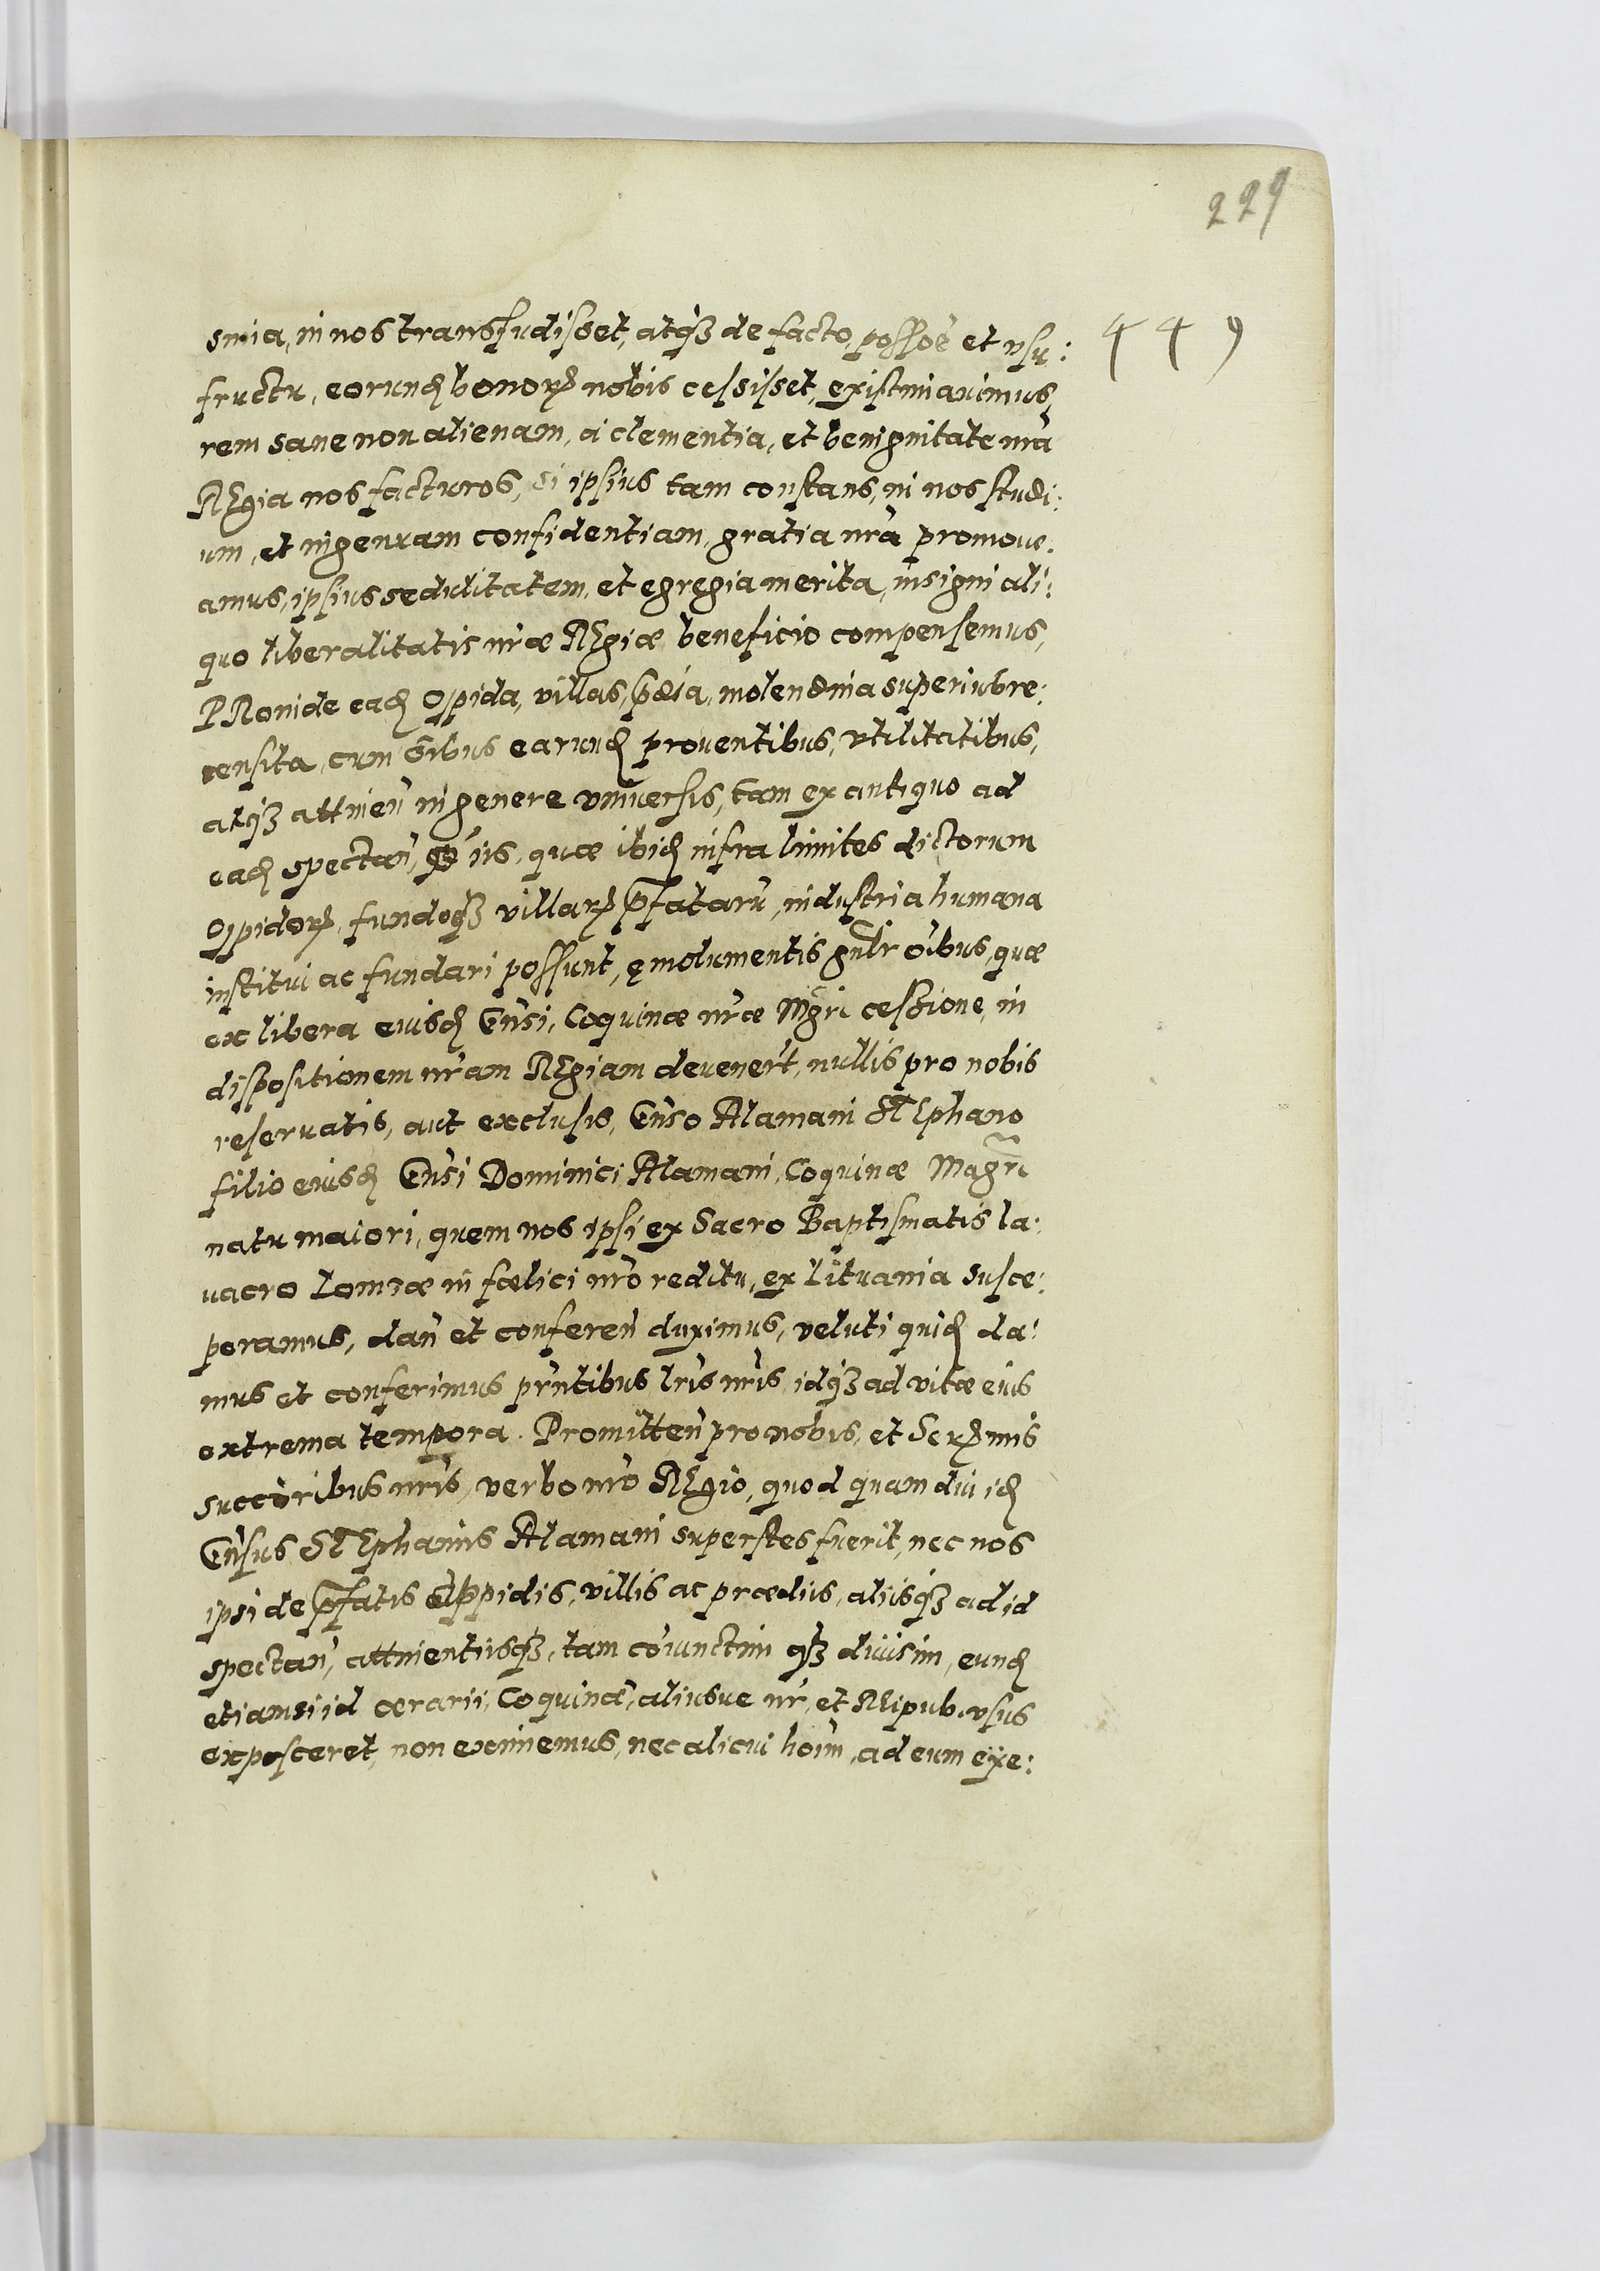 229
449
smia, in nos transfudisset, atqꝫ de facto, possoe et vsu:
fructu, eorundꝫ bonorꝫ nobis cessisset, existimauimus,
rem sane non alienam, a clementia, et benignitate nrà
REgia nos facturos, si ipsius tam constans, in nos studi:
um, et ingenuam confidentiam, gratia nrà promoue:
amus, ipsius sedulitatem, et egregia merita, insigni ali:
quo liberalitatis nræ REgiæ beneficio compensemus,
PRoinde eadꝫ Oppida, villas, pdia, molendina superius re:
censita, cum oibus earundꝫ prouentibus, vtilitatibus,
atqꝫ attinen in genere vniuersis, tam ex antiquo ad
eadꝫ spectan, iis, quæ ibidꝫ infra limites dictorum
Oppidorꝫ, fundoqꝫ villarꝫ pfatarũ, industria humana
institui ac fundari possunt, emolumentis gnlr oibus, quæ
ex libera eiusdꝫ Gnsi, Coquinæ nræ Mgri cessione, in
dispositionem nram REgiam deuenert, nullis pro nobis
reseruatis, aut exclusis, Gnso Alamani STEphano
filio eiusdꝫ Gnsi Dominici Alamani, Coquinæ Magri
natu maiori, quem nos ipsi ex Sacro Baptismatis la:
uacro Lomzæ in fœlici nro reditu, ex Lituania susce:
peramus, dan et conferen duximus, veluti quidꝫ da:
mus et conferimus pntibus lris nris, idqꝫ ad vitæ eius
extrema tempora. Promitten pro nobis, et Serꝫmis
succoribus nris, verbo nro REgio, quod quam diu idꝫ
Gnsus STEphanus Alamani superstes fuerit, nec nos
ipsi de pfatis Oppidis, villis ac prædiis, aliisqꝫ ad id
spectan, attinentiisqꝫ, tam coiunctim qꝫ diuisim, eundꝫ
etiamsi id ærarii, Coquinæ, aliusue nr, et REipub. vsus
exposceret, non eximemus, nec alicui hoim, ad eum exe: